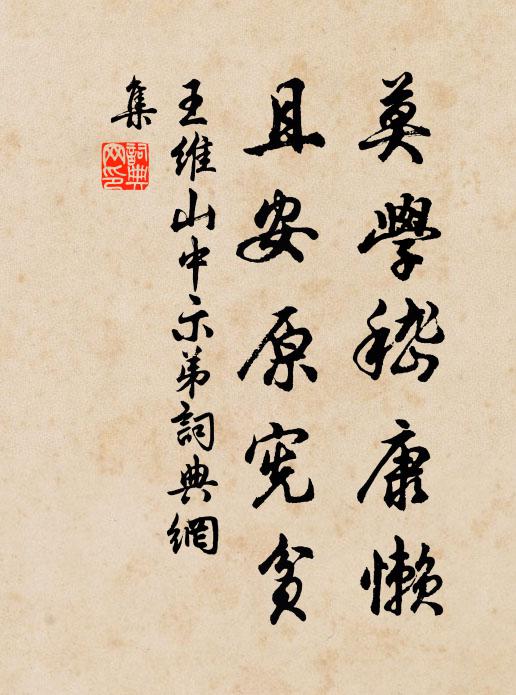 莫學嵇康懶
且安原宪貧
王維山中示弟詞典網
集
詞典
网印